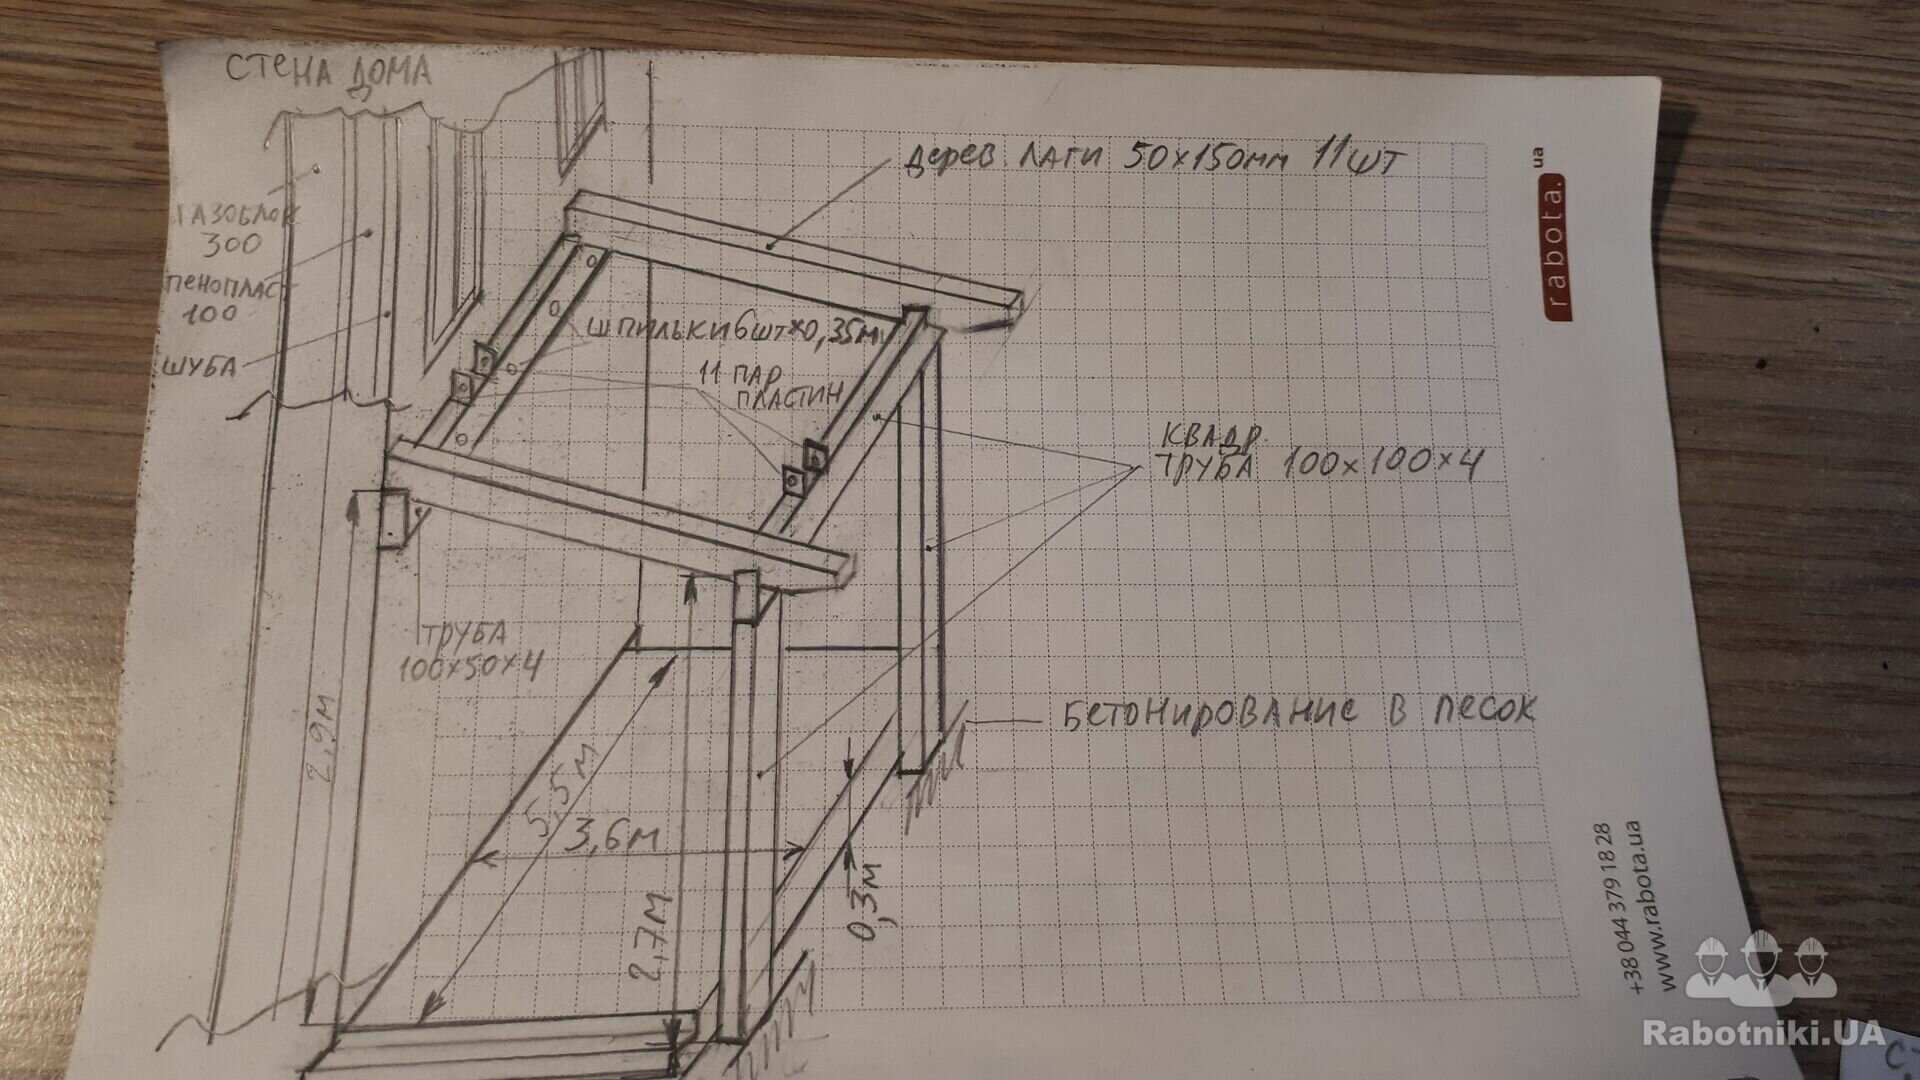 СТЕНА ДОМА
ГАЗОБЛОК
300
ПЕНОПЛАСТ
100
ШУБА
дерев лаги 50х150мм 11шт
ШПИЛЬКИ 6шт×0,35м
11 ПАР
ПЛАСТИН
КВАДР.
ТРУБА 100х100х4
ТРУБА
100х50х4
2,9м
5,5м
3,6м
2,7м
0,3м
БЕТОНИРОВАНИЕ В ПЕСОК
rabota.ua
+38 044 379 18 28
www.rabota.ua
Rabotniki.UA